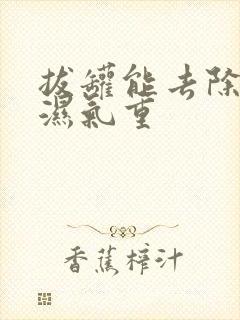 拔罐能去除
濕氣重
香蕉榨汁